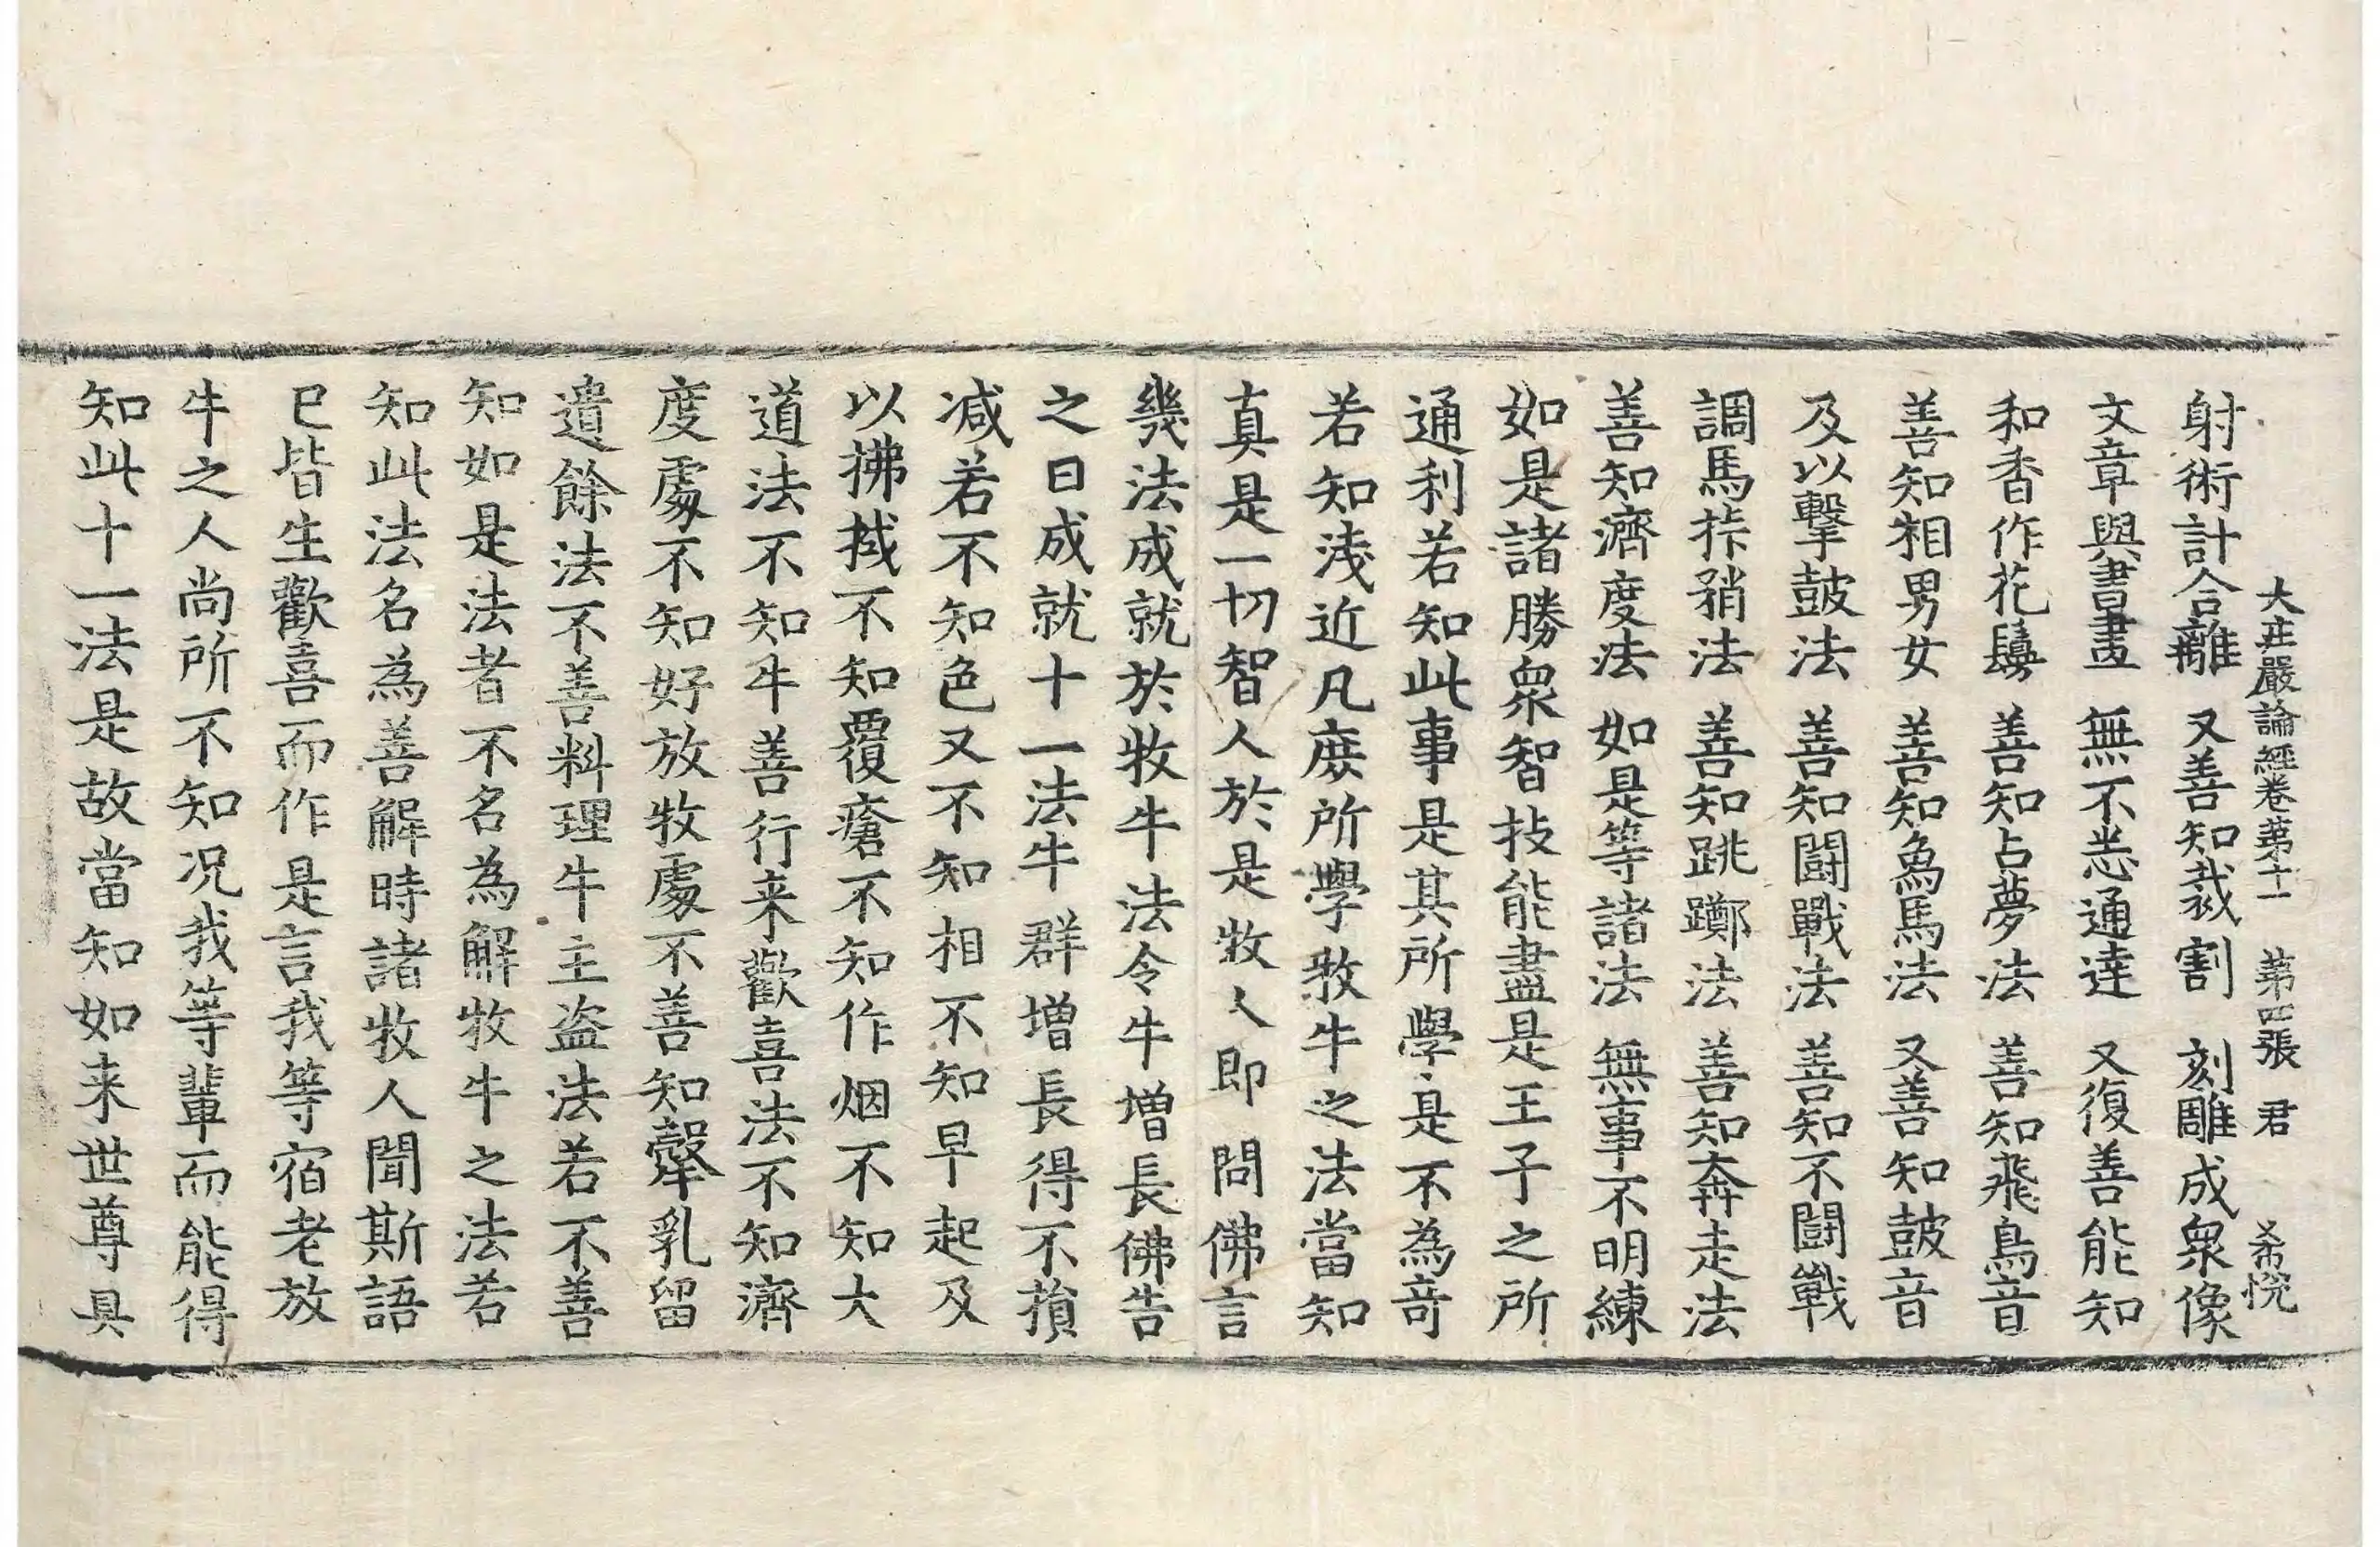 大莊嚴論經卷第十一 第四張 君 希悅
射術計合離 又善知裁割 刻雕成衆像
文章與書畫 無不悉通達 又復善能知
和香作花鬘 善知占夢法 善知飛鳥音
善知相男女 善知為馬法 又善知鼓音
及以擊鼓法 善知鬪戰法 善知不鬪戰
調馬𢫨矟法 善知跳躑法 善知奔走法
善知濟度法 如是等諸法 無事不明練
如是諸勝衆智技能盡是王子之所
通利若知此事是其所學是不為奇
若知淺近凡庶所學牧牛之法當知
真是一切智人於是牧人即問佛言
幾法成就於牧牛法令牛增長佛告
之曰成就十一法牛群增長得不損
減若不知色又不知相不知早起及
以拂拭不知覆瘡不知作烟不知大
道法不知牛善行来歡喜法不知濟
度處不知好放牧處不善知𤚲乳留
遺餘法不善料理牛主盗法若不善
知如是法者不名為解牧牛之法若
知此法名為善解時諸牧人聞斯語
已皆生歡喜而作是言我等宿老放
牛之人尚所不知况我等輩而能得
知此十一法是故當知如来世尊具